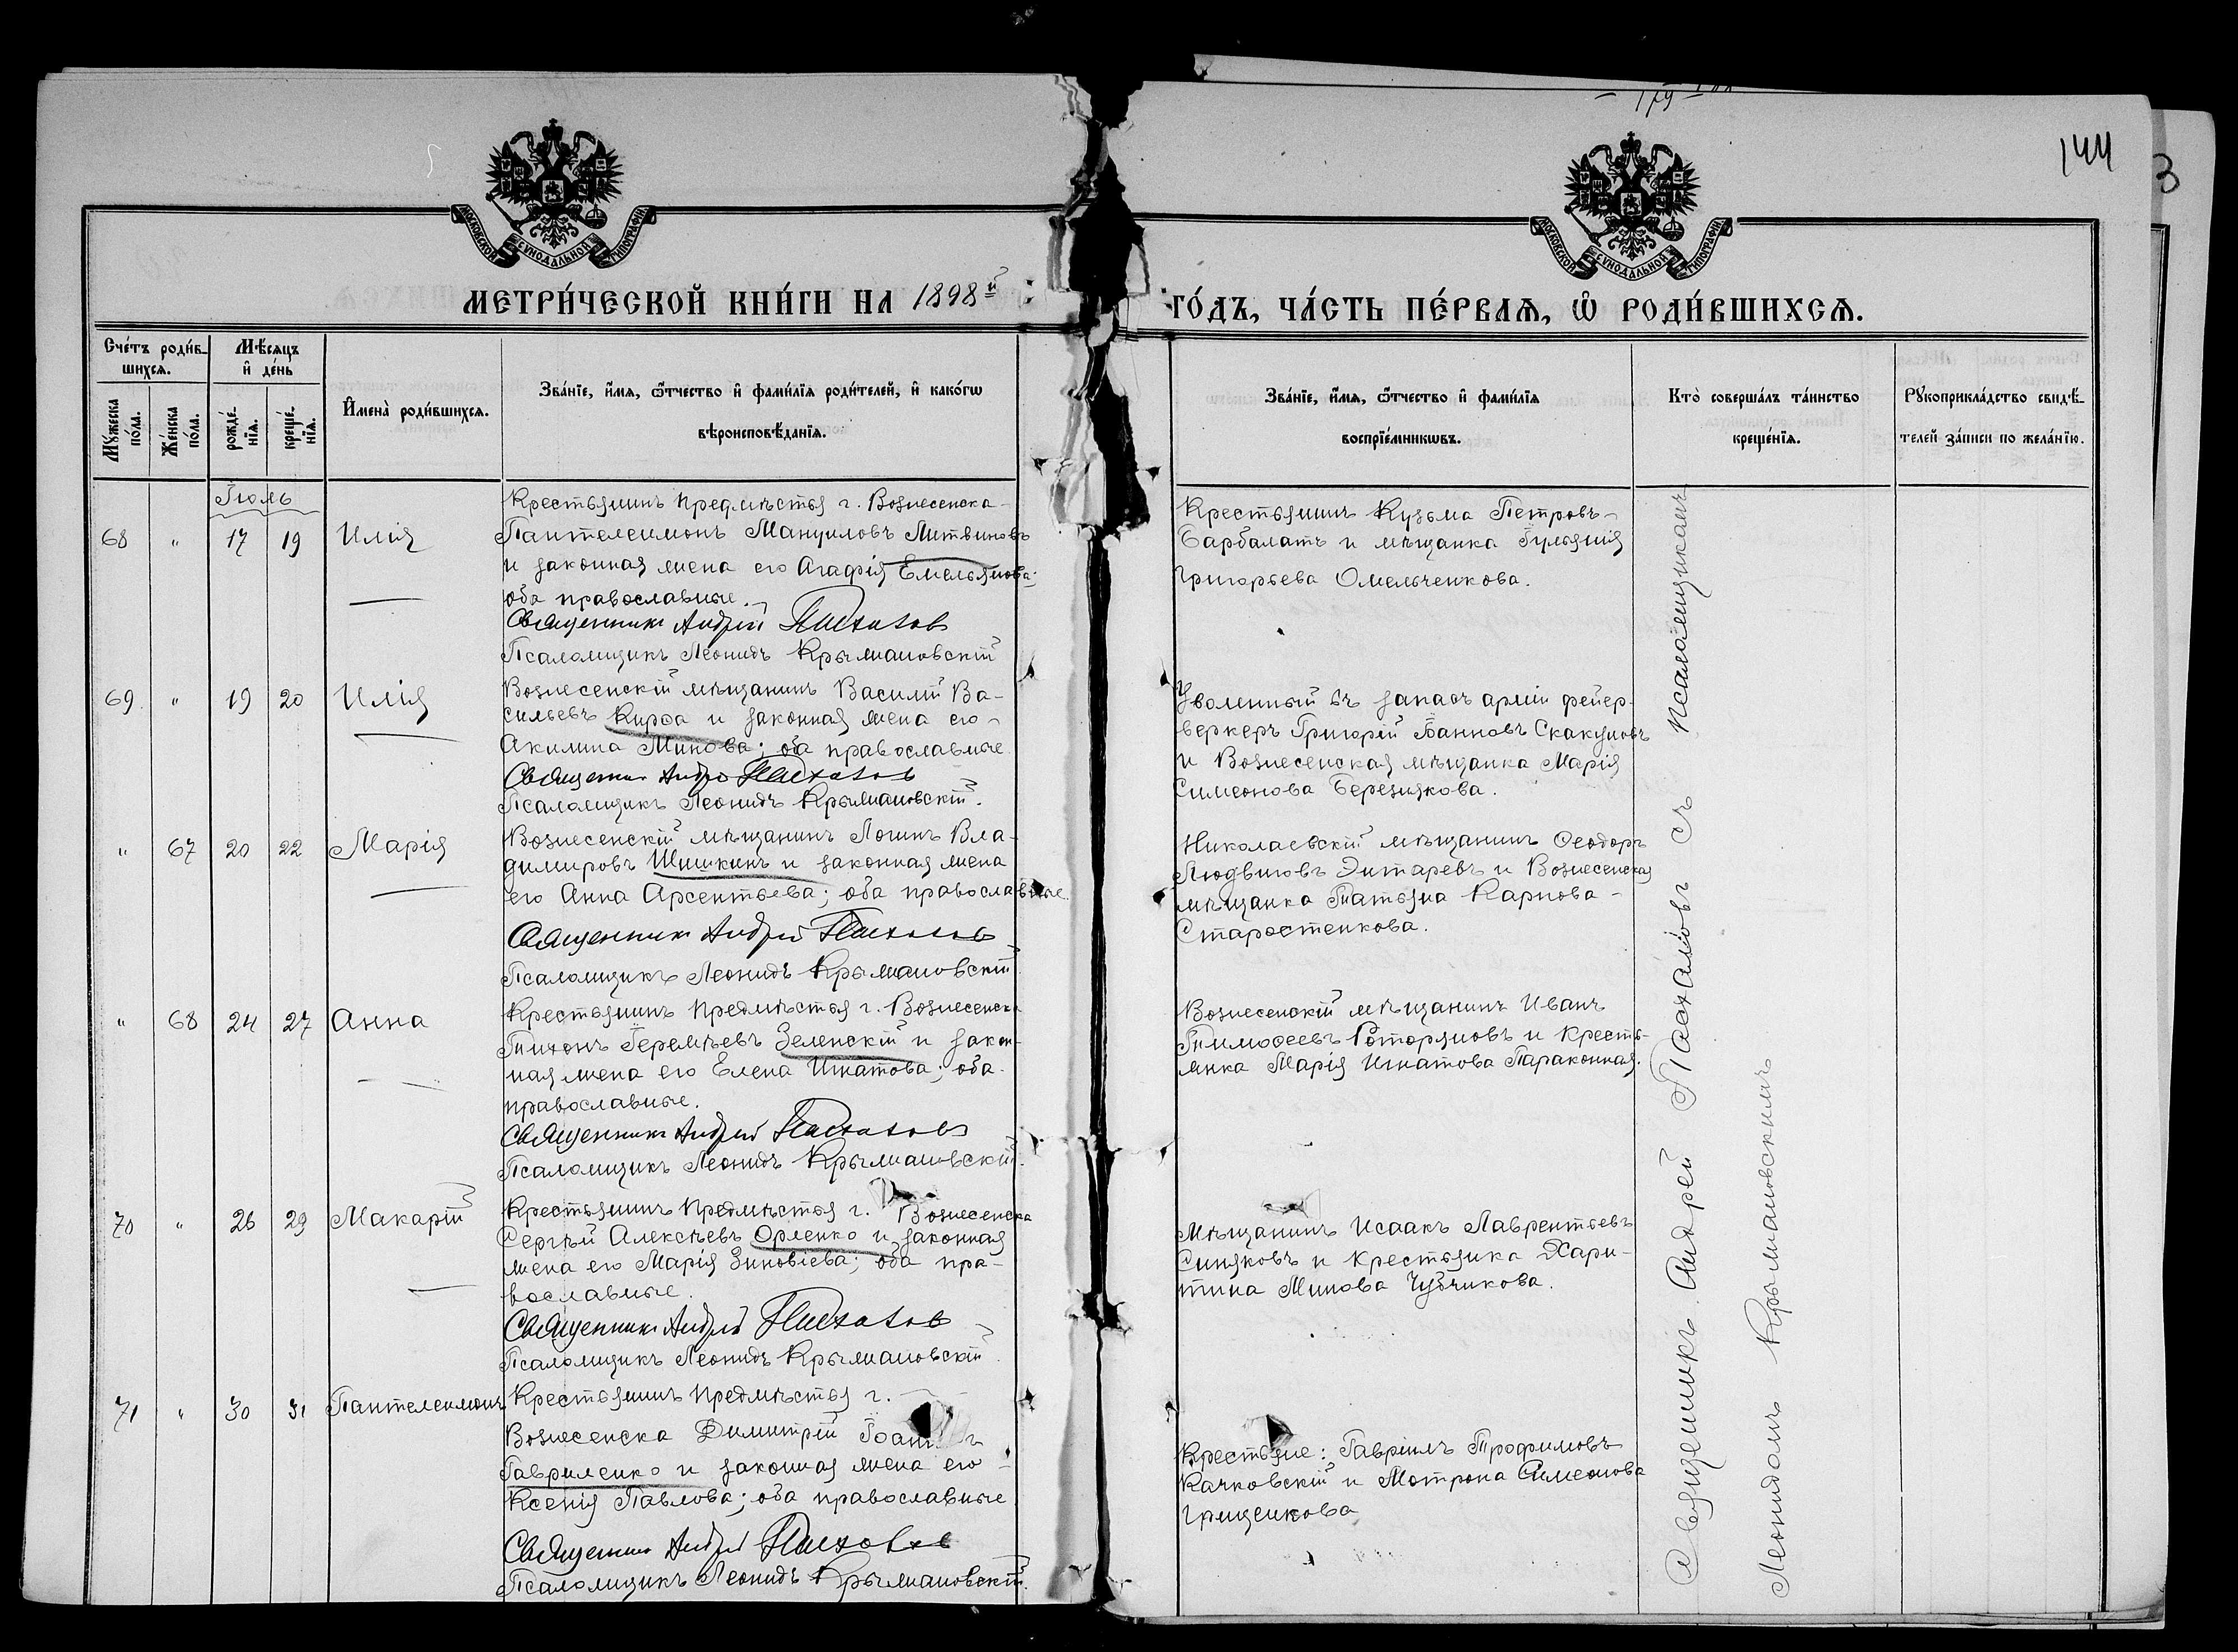 179
144
3
МОСКОВСКОЙ СУНОДАЛЬНОЙ ТИПОГРАФІИ
МОСКОВСКОЙ СУНОДАЛЬНОЙ ТИПОГРАФІИ
МЕТРИ́ЧЕСКОЙ КНИ́ГИ НА 1898й
ГО́ДЪ, ЧА́СТЬ ПЕ́РВАѦ, Ѡ҆ РОДИ́ВШИХСѦ.
Сче́тъ роди́в-
шихсѧ.
Мѣ́сѧцъ
и҆ де́нь
Мꙋ́жеска
по́ла.
Же́нска
по́ла.
рожде́-
нїѧ.
креще́-
нїѧ.
И҆мена̀ роди́вшихсѧ.
Зва́нїе, и҆́мѧ, ѻ҆́тчество и҆ фами́лїѧ роди́телей, и҆ како́гѡ
вѣроисповѣ́данїѧ.
Зва́нїе, и҆́мѧ, ѻ҆́тчество и҆ фами́лїѧ
воспрїе́мникѡвъ.
Кто̀ соверша́лъ та́инство
креще́нїѧ.
Рꙋкоприкла́дство свидѣ́-
телей за́писи по жела́нїю.
Іюль
68 " 17 19 Илія
Крестьянинъ предмѣстья г. Вознесенска
Пантелеимонъ Мануиловъ Литвиновъ
и законная жена его Агафія Емельянова;
оба православные.
Священникъ Андрей Пастаховъ
Псаломщикъ Леонидъ Крыжановскій
Крестьянинъ Кузьма Петровъ
Барбалатъ и мѣщанка Іуліанія
Григорьева Омельченкова.
69 " 19 20 Илія
Вознесенскій мѣщанинъ Василій Ва-
сильевъ Кирса и законная жена его
Акилина Минова; оба православные
Священникъ Андрей Пастаховъ
Псаломщикъ Леонидъ Крыжановскій.
Уволенный въ запасъ арміи фейер-
веркеръ Григорій Іоанновъ Скакуновъ
и Вознесенская мѣщанка Марія
Симеонова Березякова.
" 67 20 22 Марія
Вознесенскій мѣщанинъ Логинъ Вла-
димировъ Шишкинъ и законная жена
его Анна Арсентьева; оба православные.
Священникъ Андрей Пастаховъ
Псаломщикъ Леонидъ Крыжановскій
Николаевскій мѣщанинъ Ѳеодоръ
Людвиговъ Энтаревъ и Вознесенская
мѣщанка Татьяна Карпова
Старостенкова.
" 68 24 27 Анна
Крестьянинъ предмѣстья г. Вознесенска
Тихонъ Іеремѣевъ Зеленскій и закон-
ная жена его Елена Игнатова; оба
православные.
Священникъ Андрей Пастаховъ
Псаломщикъ Леонидъ Крыжановскій.
Вознесенскій мѣщанинъ Иванъ
Тимоѳеевъ Роторяновъ и Кресть-
янка Марія Игнатова Параконная.
70 " 26 29 Макарій
Крестьянинъ предмѣстья г. Вознесенска
Сергѣй Алексѣевъ Орленко и законная
жена его Марія Зиновіева; оба пра-
вославные.
Священникъ Андрей Пастаховъ
Псаломщикъ Леонидъ Крыжановскій
Мѣщанинъ Исаакъ Лаврентьевъ
Синяковъ и крестьянка Хари-
тина Минова Чубчикова.
71 " 30 31 Пантелеимонъ
Крестьянинъ предмѣстья г.
Вознесенска Димитрій
Гавриленко и законная жена его
Ксенія Павлова; оба православные
Священникъ Андрей Пастаховъ
Псаломщикъ Леонидъ Крыжановскій.
Крестьяне: Гавріилъ Трофимовъ
Качковскій и Мотрона Симеонова
Грищенкова
Священникъ Андрей Пастаховъ съ псаломщикомъ
Леонидомъ Крыжановскимъ